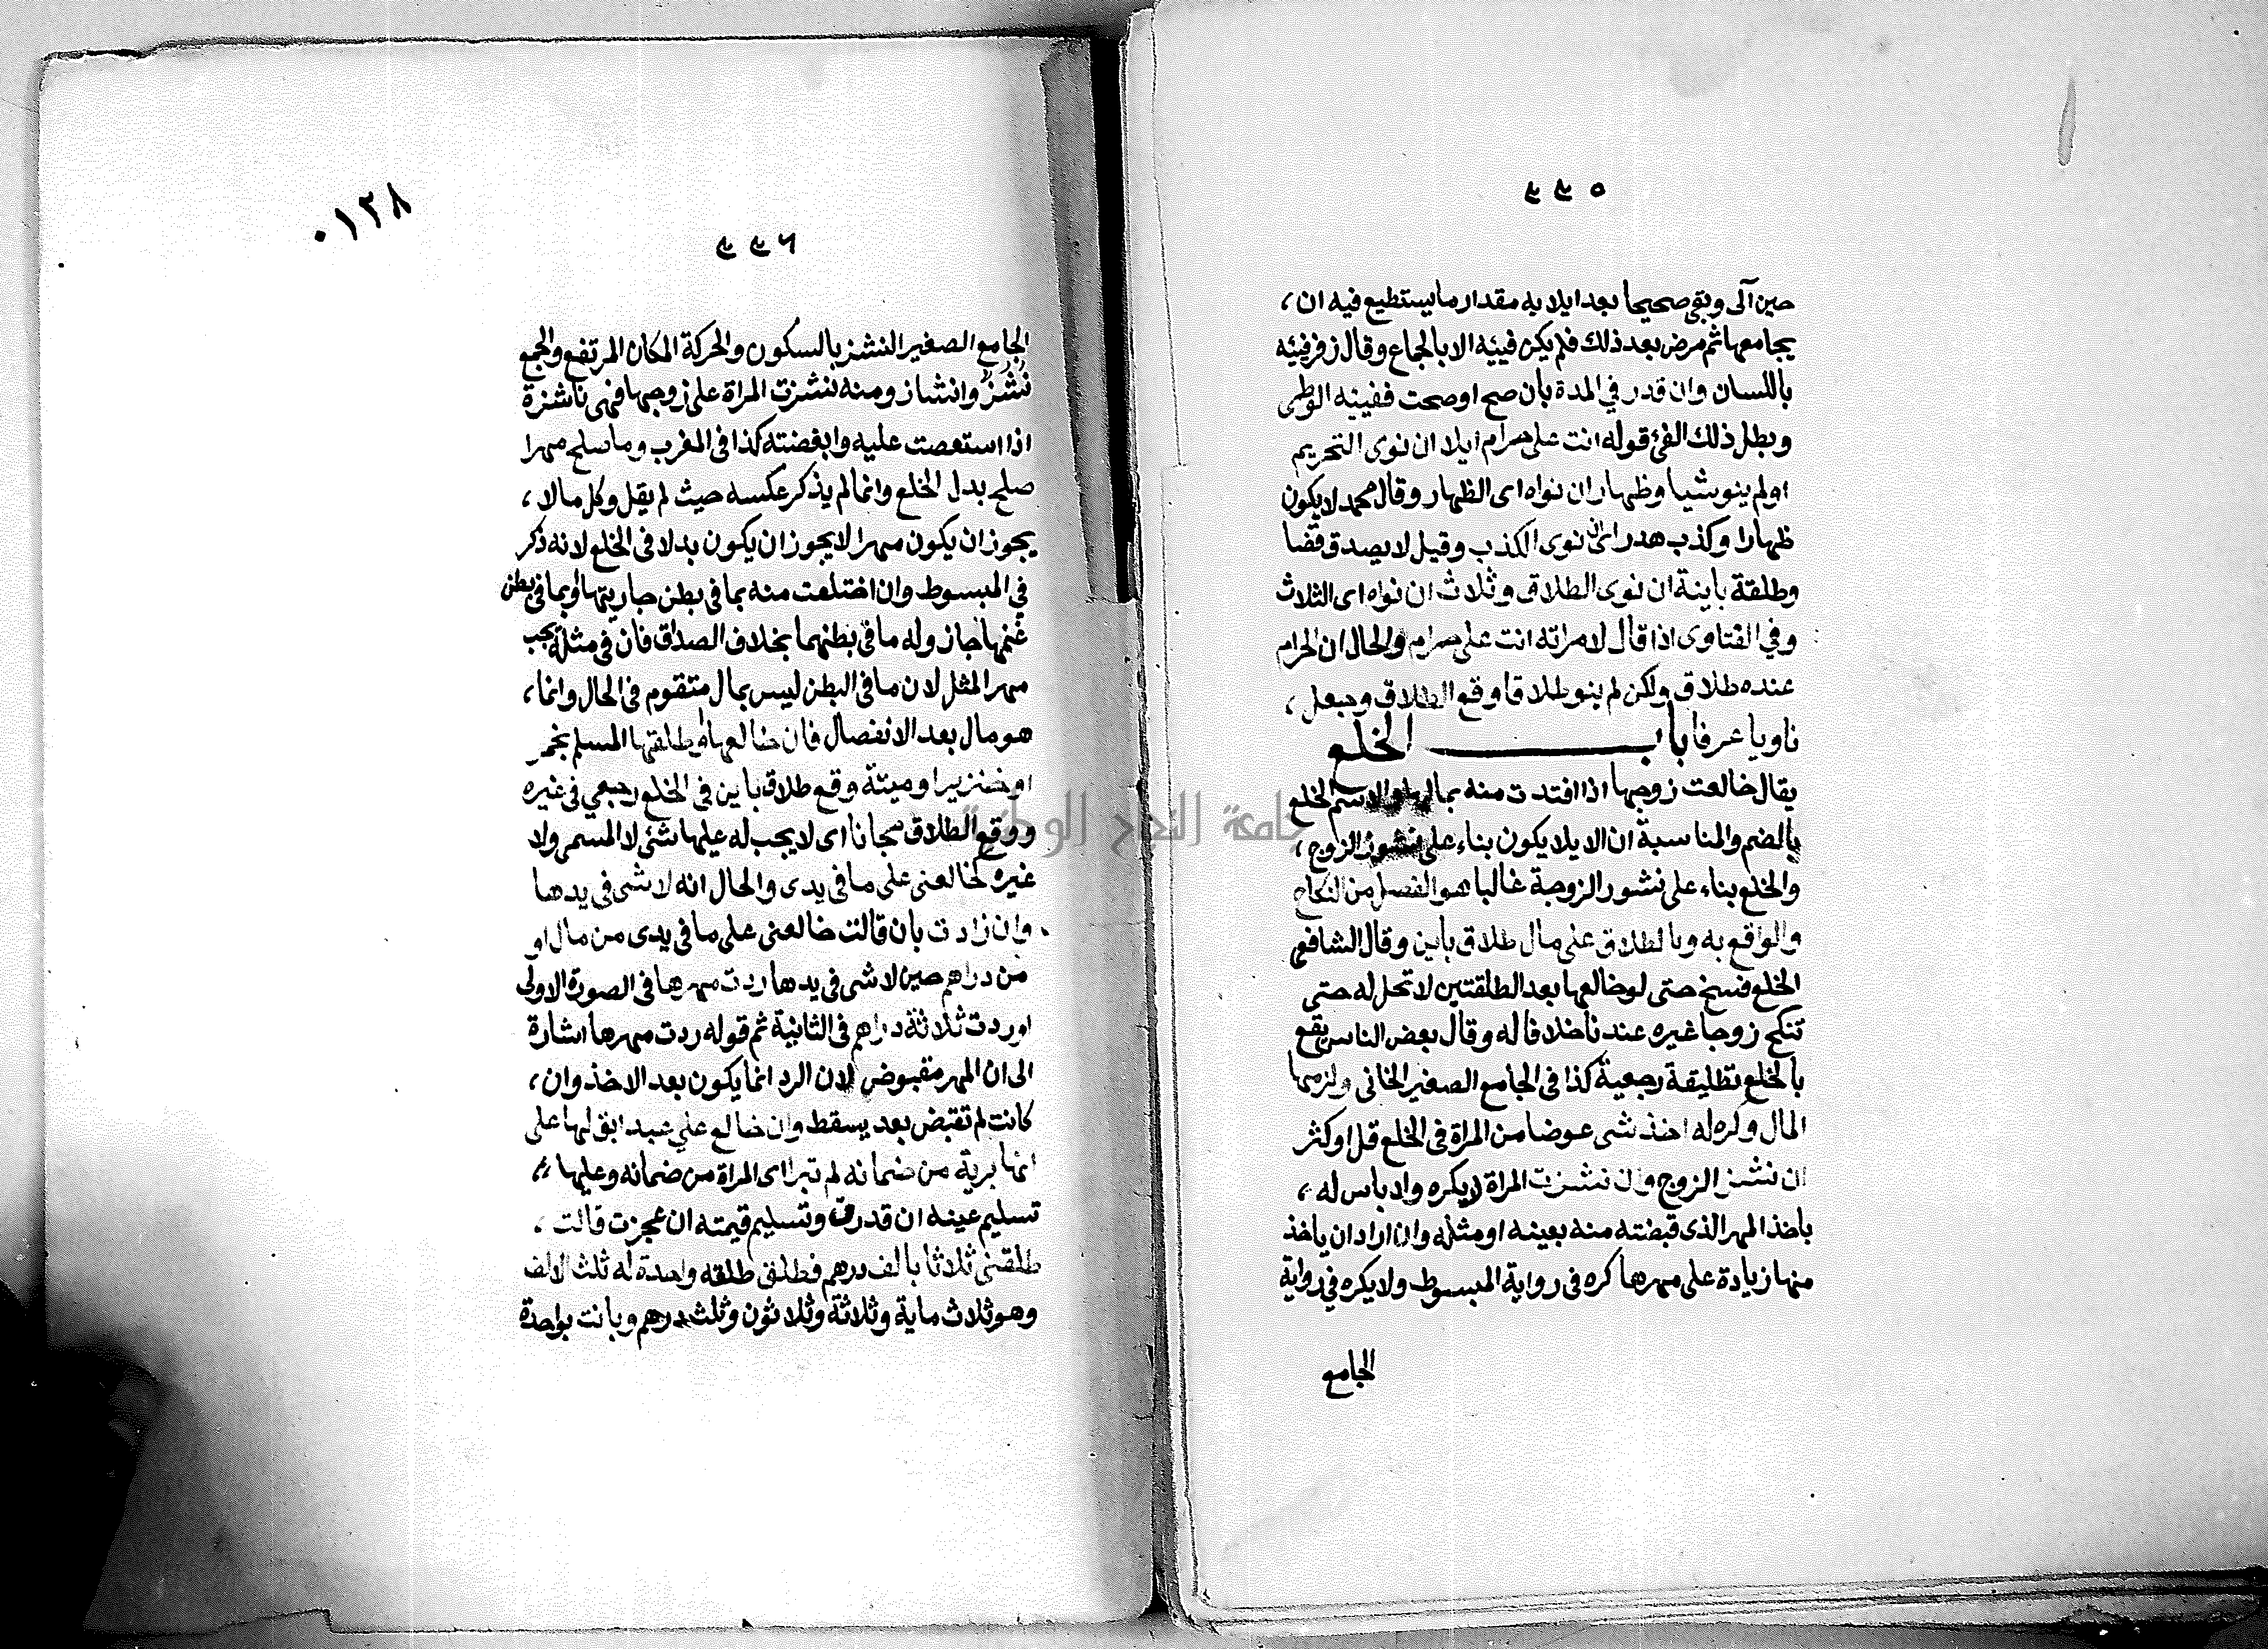 ٤٤٥
حين آلى وبقى صحيحا بعد ايلايه مقدار ما يستطيع فيه ان،
يجامعها ثم مرض بعد ذلك فلم يكن فييه الا بالجماع وقال زفر فييه
باللسان وان قدر في المدة بان صح او صحت ففييه الوطى
وبطل ذلك الفئ قوله انت على حرام ايلا ان نوى التحريم
او لم ينو شيا وظهار ان نواه اى الظهار وقال محمد لا يكون
ظهارا وكذب هدر اى ان نوى الكذب وقيل لا يصدق قضا
وطلقة باينة ان نوى الطلاق وثلاث ان نواه اى الثلاث
وفي الفتاوى اذا قال لامراته انت على حرام والحال ان الحرام
عنده طلاق ولكن لم ينو طلاقا وقع الطلاق وجعل،
ناويا عرفا باب الخلع
يقال خالعت زوجها اذا افتدت منه بمالها والاسم الخلع
بالضم والمناسبة ان الايلا يكون بناء على نشوز الزوج،
والخلع بناء على نشوز الزوجة غالبا هو الفصل من النكاح
والواقع به وبالطلاق على مال طلاق باين وقال الشافعى
الخلع فسخ حتى لو خالعها بعد الطلقتين لا تحل له حتى
تنكح زوجا غيره عندنا خلافا له وقال بعض الناس يقع
بالخلع تطليقة رجعية كذا فى الجامع الصغير الخانى ولزمها
المال وكره له اخذ شى عوضا من المراة فى الخلع قل او كثر
ان نشز الزوج وان نشزت المراة لا يكره ولا باس له،
باخذ المهر الذى قبضته منه بعينه او مثله وان اراد ان ياخذ
منها زيادة على مهرها كره فى رواية المبسوط ولا يكره فى رواية
الجامع
٠١٢٨
٤٤٦
الجامع الصغير النشز بالسكون والحركة المكان المرتفع والجمع
نُشُزٌ وانشاز ومنه نشزت المراة على زوجها فهى ناشزة
اذا استعصت عليه وابغضته كذا فى المغرب وما صلح مهرا
صلح بدل الخلع وانما لم يذكر عكسه حيث لم يقل وكل ما لا،
يجوز ان يكون مهرا لا يجوز ان يكون بدلا فى الخلع لانه ذكر
في المبسوط وان اختلعت منه بما فى بطن جاريتها او بما فى بطن
غنمها جاز وله ما فى بطنهما بخلاف الصداق فان فى مثله يجب
مهر المثل لان ما فى البطن ليس بمال متقوم فى الحال وانما،
هو مال بعد الانفصال فان خالعها او طلقها المسلم بخمر
او خنزير او ميتة وقع طلاق باين فى الخلع رجعي فى غيره
ووقع الطلاق مجانا اى لا يجب له عليها شئ لا المسمى ولا
غيره كخالعنى على ما فى يدى والحال انه لا شى فى يدها
وان زادت بان قالت خالعنى على ما فى يدى من مال او
من دراهم حين لا شى فى يدها ردت مهرها فى الصورة الاولى
او ردت ثلاثة دراهم فى الثانية ثم قوله ردت مهرها اشارة
الى ان المهر مقبوض لان الرد انما يكون بعد الاخذ وان،
كانت لم تقبض بعد يسقط وان خالع علي عبد ابق لها على
انها برية من ضمانه لم تبرا اى المراة من ضمانه وعليها،
تسليم عينه ان قدرت وتسليم قيمته ان عجزت قالت،
طلقنى ثلاثا بالف درهم فطلق طلقه واحدة له ثلث الالف
وهو ثلاث ماية وثلاثة وثلاثون وثلث درهم وبانت بواحدة
جامعة النجاح الوطنية